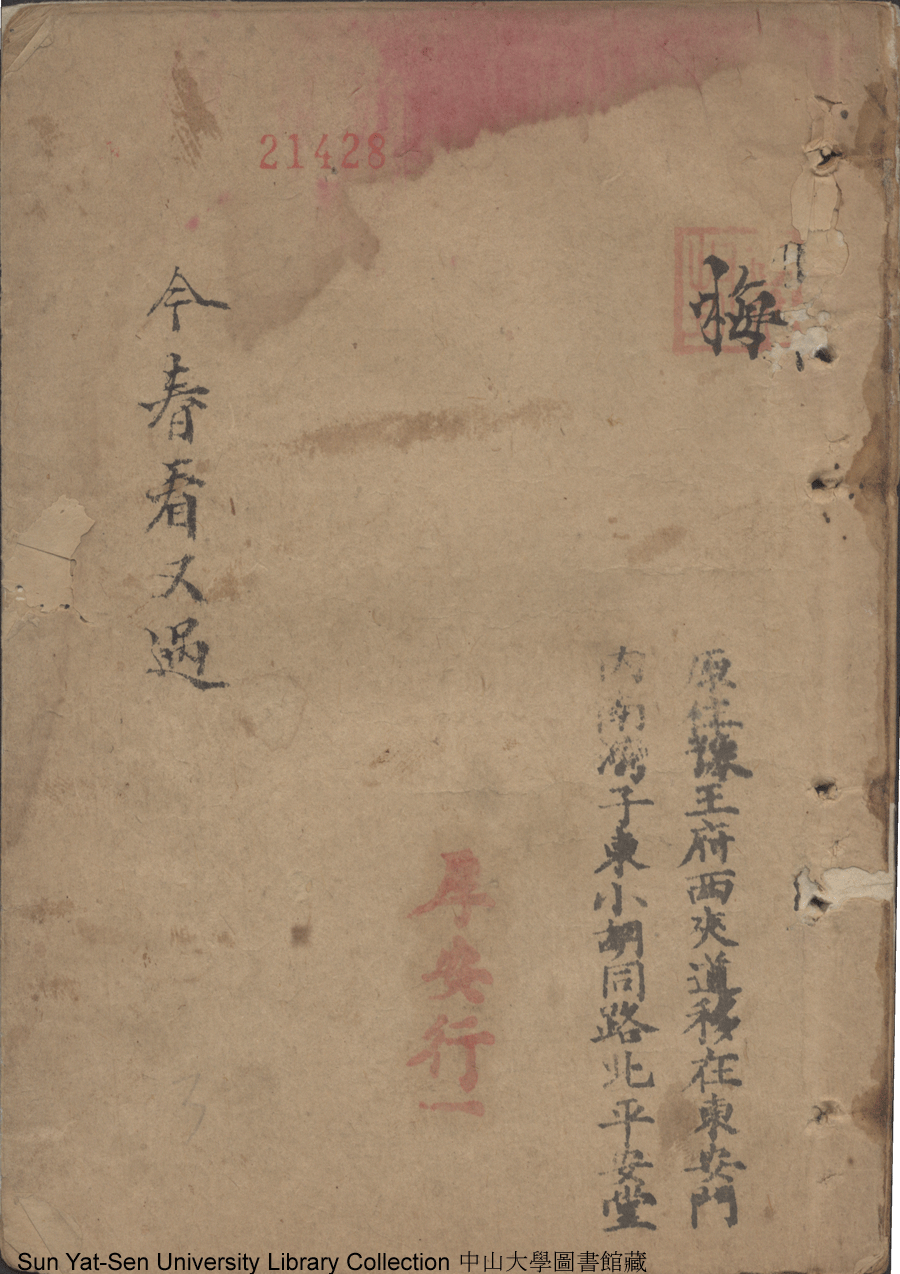 21428
梅
原住豫王府西夾道移在東安門
内南灣子東小胡同路北平安堂
厚安行一
今春看又過
Sun Yat-Sen University Library Collection 中山大學圖書館藏